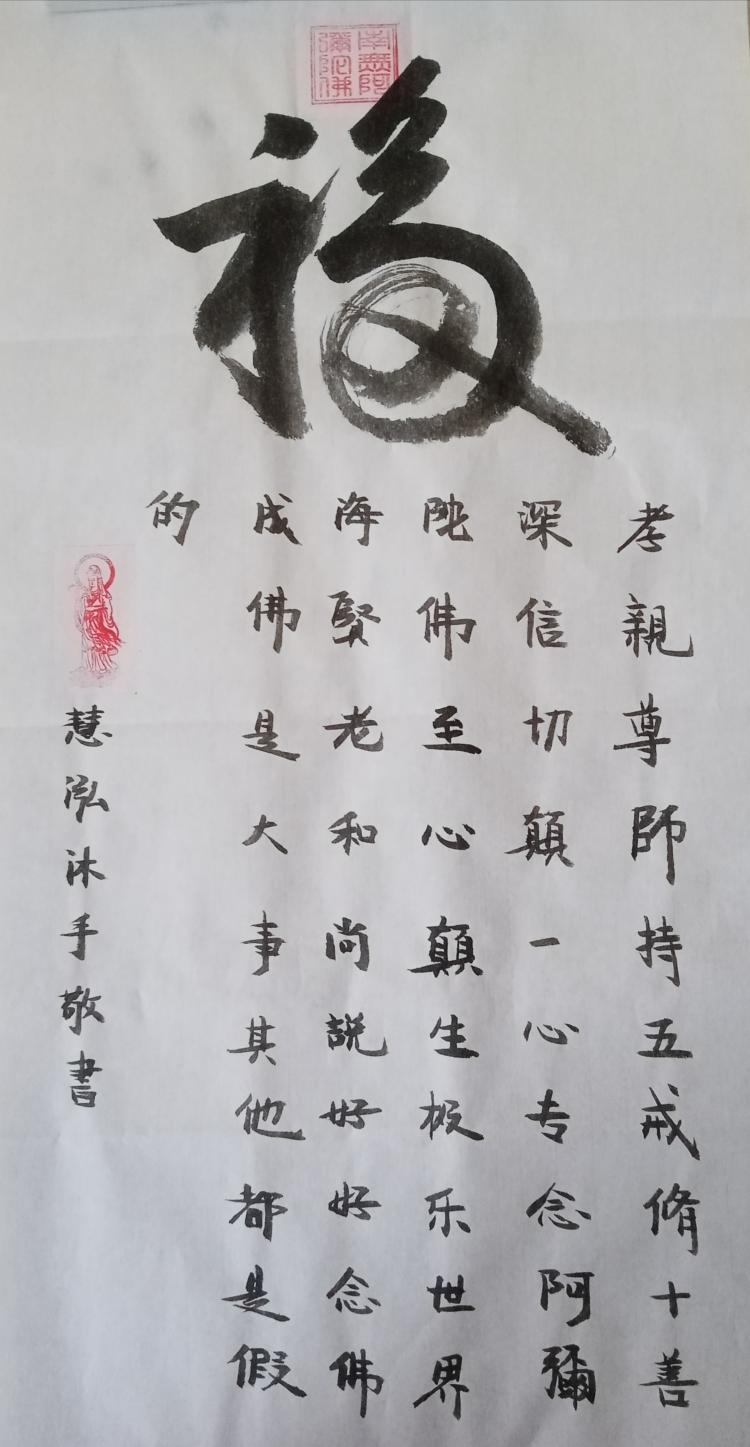 南無阿彌陀佛
福
孝親尊師持五戒脩十善
深信切顛一心专念阿彌
陀佛至心顛生极乐世界
海賢老和尚説好好念佛
成佛是大事其他都是假
的
慧泓沐手敬書